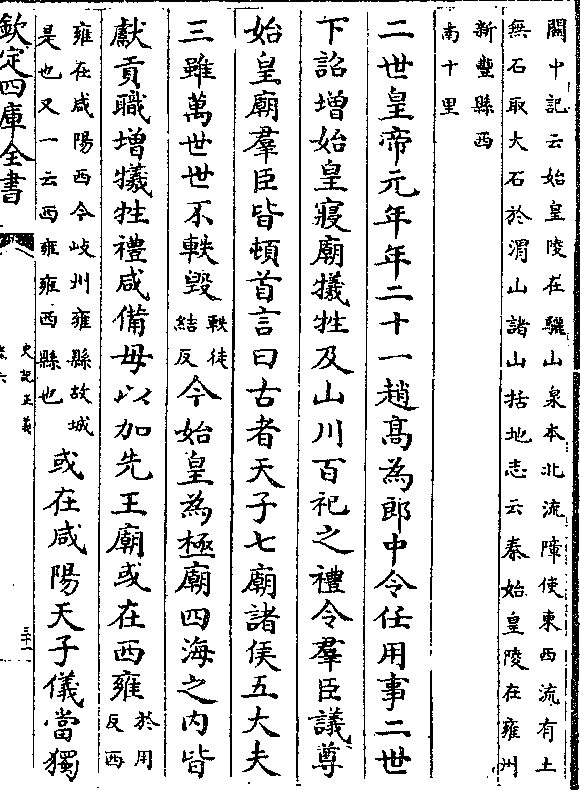 關中記云始皇陵在驪山泉本北流障使東西流有土
無石取大石於渭山諸山括地志云秦始皇陵在雍州
新豐縣西
南十里
二世皇帝元年年二十一趙髙為郎中令任用事二世
下詔增始皇寢廟犧牲及山川百祀之禮令羣臣議尊
始皇廟羣臣皆頓首言曰古者天子七廟諸侯五大夫
三雖萬世世不軼毀軼徒結反今始皇為極廟四海之内皆
獻貢職增犧牲禮咸備毋以加先王廟或在西雍於用反西
雍在咸陽西今岐州雍縣故城
是也又一云西雍雍西縣也
或在咸陽天子儀當獨
欽定四庫全書
史記正義
三十一